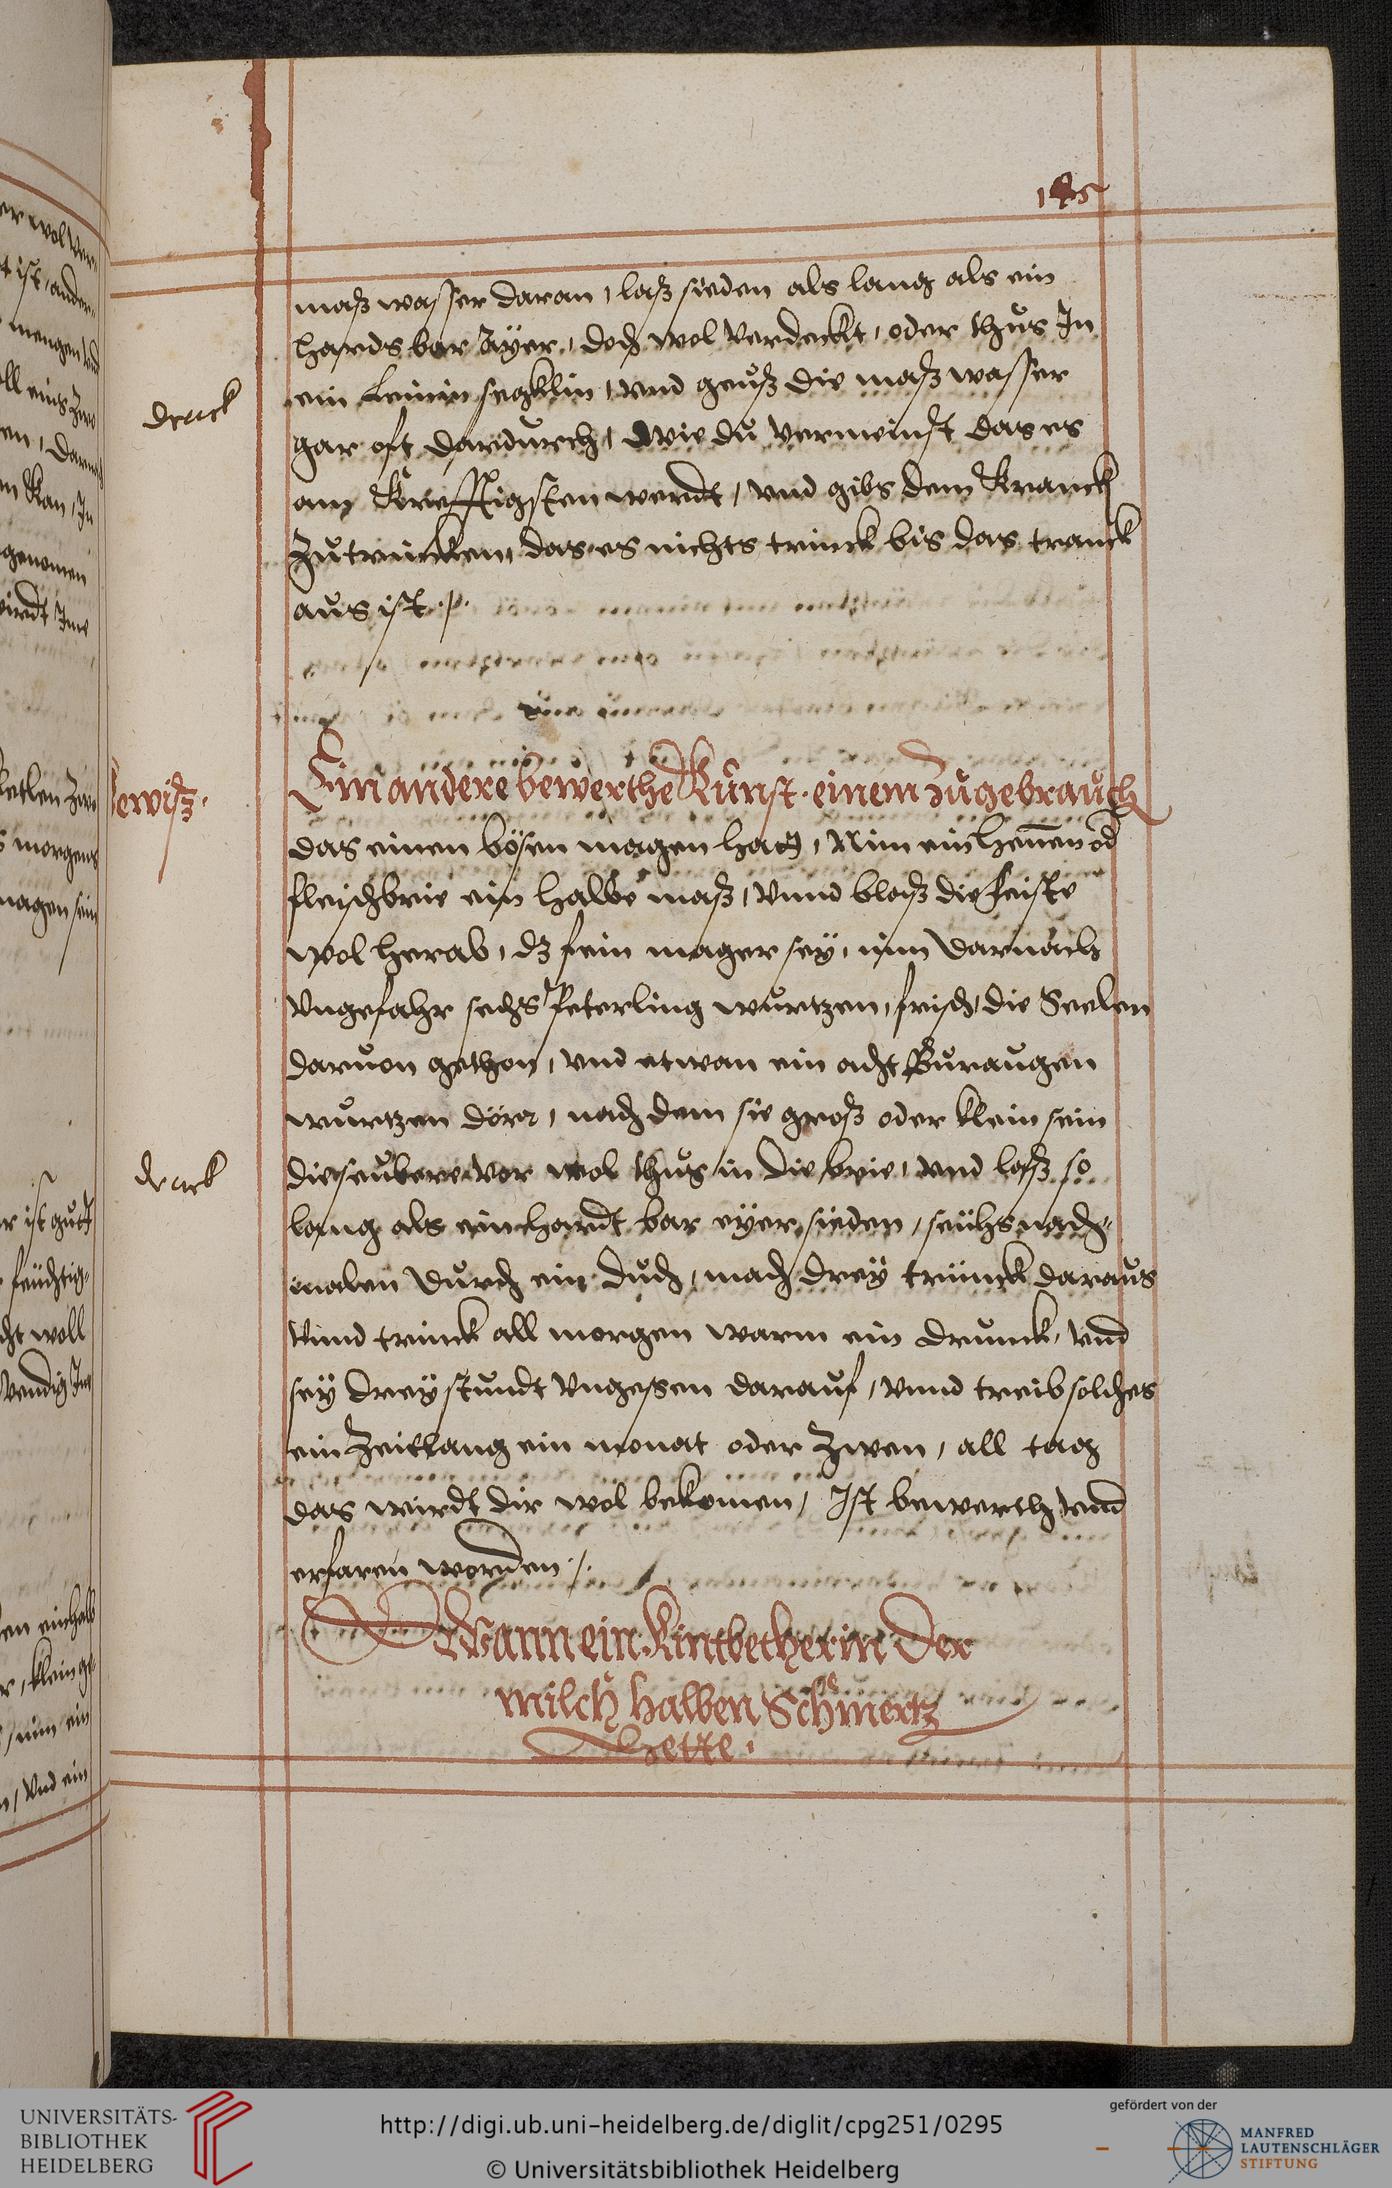 maß wasser daran, laß sieden als lang als ein
hards bar Ayer, doch wol verdeckt, oder thus In
ein leinin segklin, vnd geuß die maß wasser
gar oft dardurch, wie du vermeinst das es
am kreffigsten werdt, vnd gibs dem kranck
zutrincken, das es nichts trinck bis das tranck
aus ist ./.
Ein andere bewerthe Kunst einem zugebrauch
das einen bösen magen hat, Nim ein hennen od
fleischbrie ein halbe maß, vnnd bloß die feiste
wol herab, dz fein mager sey, nim darnach
vngefahr sechs Peterling wurtzen, frisch, die Seelen
daruon gethon, vnd etwan ein acht Buraugen
wurtzen dörr, nach dem sie groß oder klein sein
die seubere vor wol thus in die brie, vnd laß so
lang als ein hardt bar eyer sieden, seihs nach
malen durch ein duch, mach drey trünck daraus
vnnd trinck all morgen warm ein drunck, vnd
sey drey stundt vngessen darauf, vnnd treib solches
ein Zeitlang ein monat oder Zwen, all tag
das wirdt dir wol bekomen, Ist bewerth vnd
erfaren worden ./.
Wann ein Kintbetherin der
milch halben Schmertz
hette.
druck
druck
UNIVERSITÄTS-
BIBLIOTHEK
HEIDELBERG
http://digi.ub.uni-heidelberg.de/diglit/cpg251/0295
© Universitätsbibliothek Heidelberg
gefördert von der
MANFRED
LAUTENSCHLÄGER
STIFTUNG